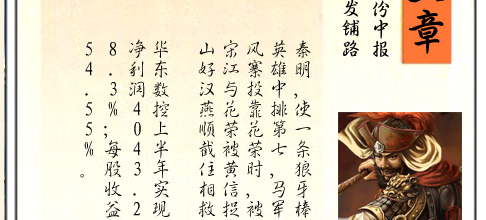 章
份中报
发铺路
秦明,使一条狼牙棒
英雄中排第七,马军
风寨投靠花荣时,被
宋江与花荣被黄信
山好汉燕顺截住相救
华东数控上半年实现
净利润4043.2
8.3%;每股收益
54.55%。